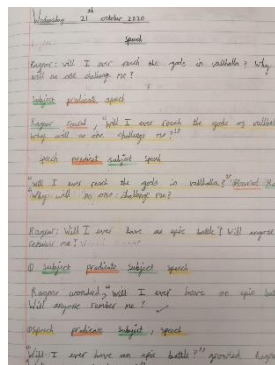 Wednesday 21st october 2020
speech
Ragnar: will I ever reach the gods in vallhalla? Why
will no one challenge me?
subject predicate speech
Ragnar "Will I ever reach the gods
Why will no one challenge me?"
speech predicate subject speech
"Will I ever reach the gods in vallhalla?"
"Why will no one challenge me?
Ragnar: Will I ever have an epic battle? Will anyone
me?
① subject predicate subject speech
Ragnar wondered, "Will I ever have an epic
Will anyone me?
② speech predicate subject, speech
"Will I ever have an epic battle?" growled